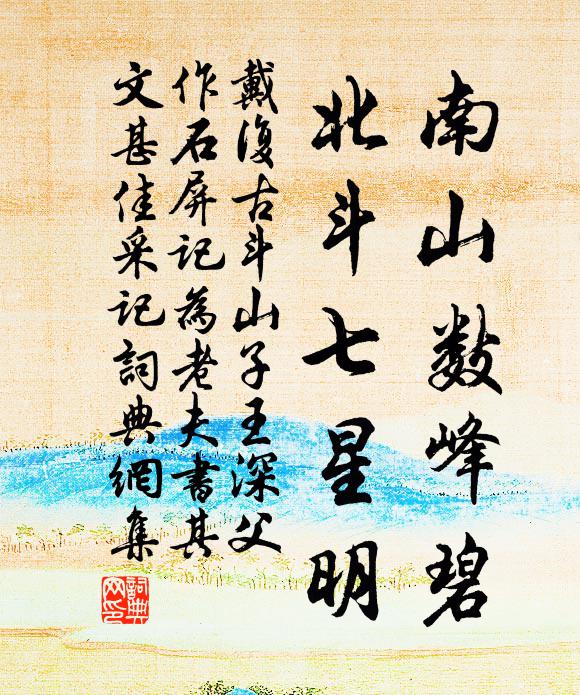 南山數峰碧
北斗七星明
戴復古斗山子王深父
作石屏記為老夫書其
文甚佳采記詞典網集
詞典網印